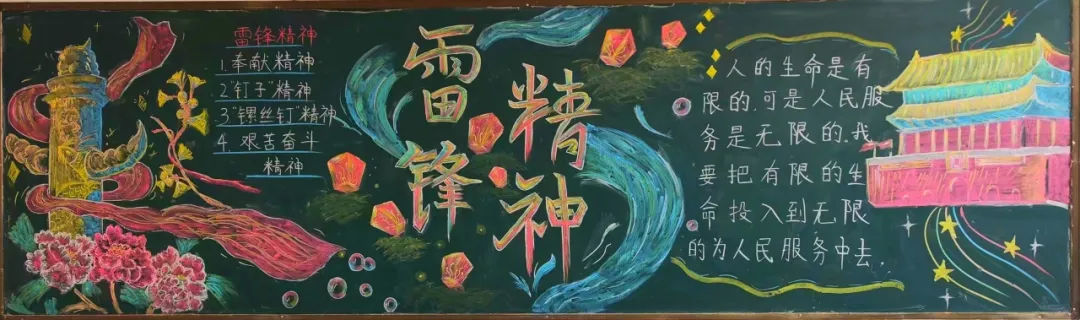 雷锋精神
1.奉献精神
2"钉子"精神
3"镙丝钉"精神
4.艰苦奋斗
精神
雷锋
精神
人的生命是有
限的.可是人民服
务是无限的.我
要把有限的生
命投入到无限
的为人民服务中去.